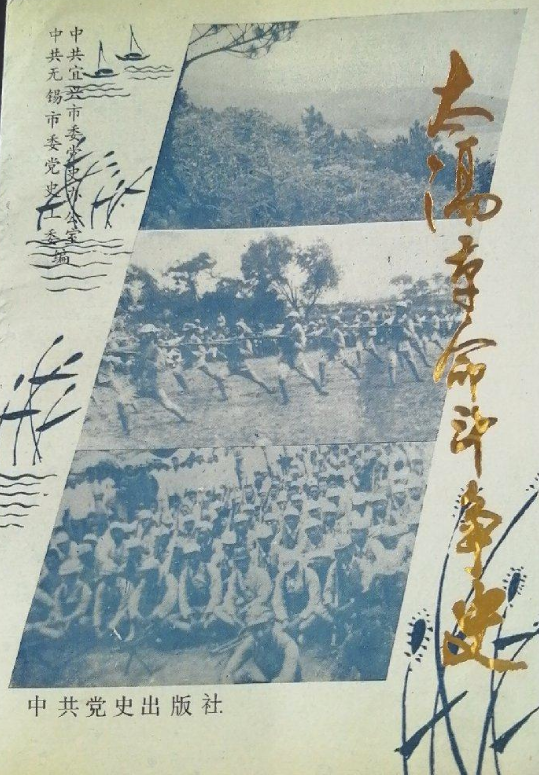 太滆革命斗争史
中共宜兴市委党史办公室
中共无锡市委党史工委
编
中共党史出版社